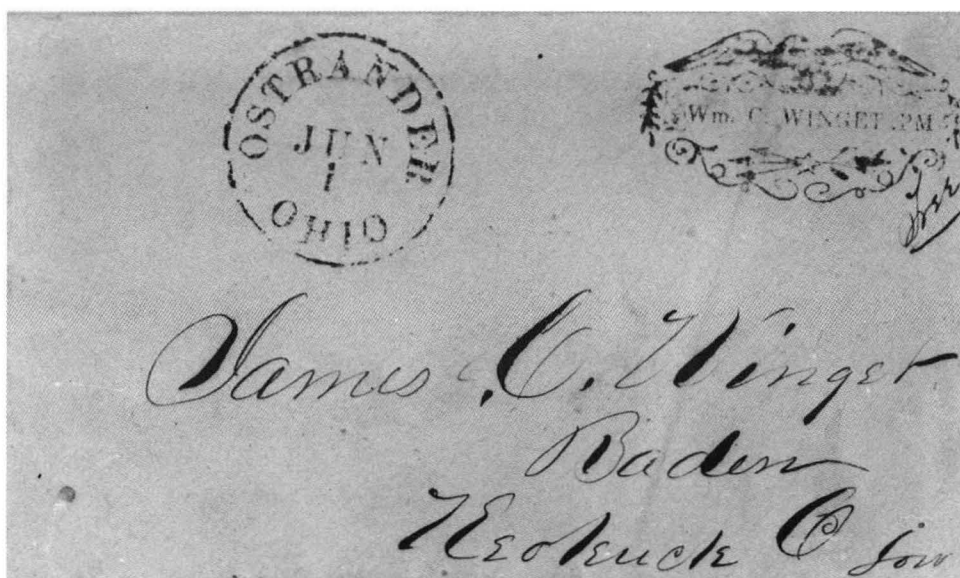 OSTRANDER
JUN
1
OHIO
Wm. C. WINGET .PM
Free
James C. Winget
Baden
Keokuck C Iow